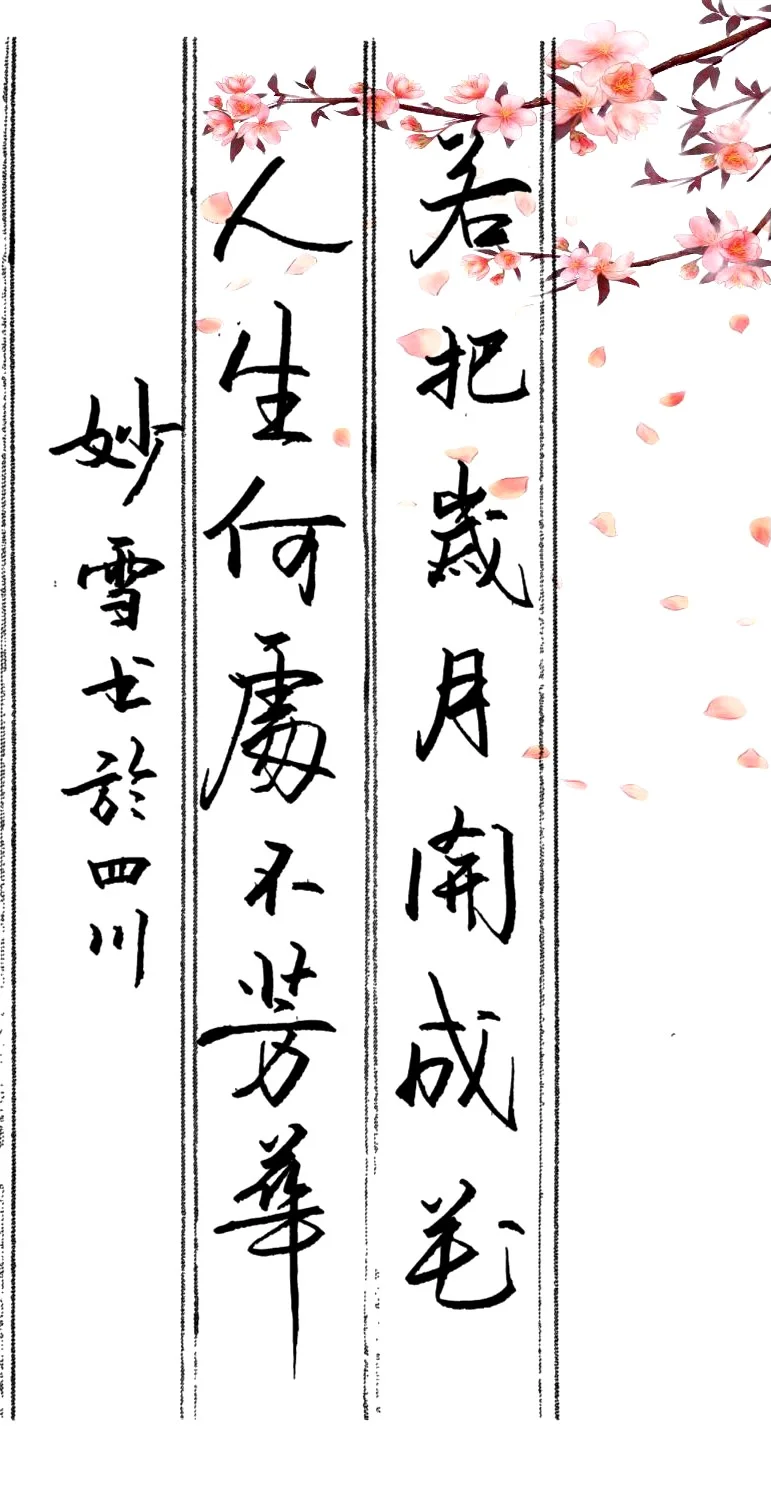 若把歲月開成花
人生何處不芳華
妙雪书於四川